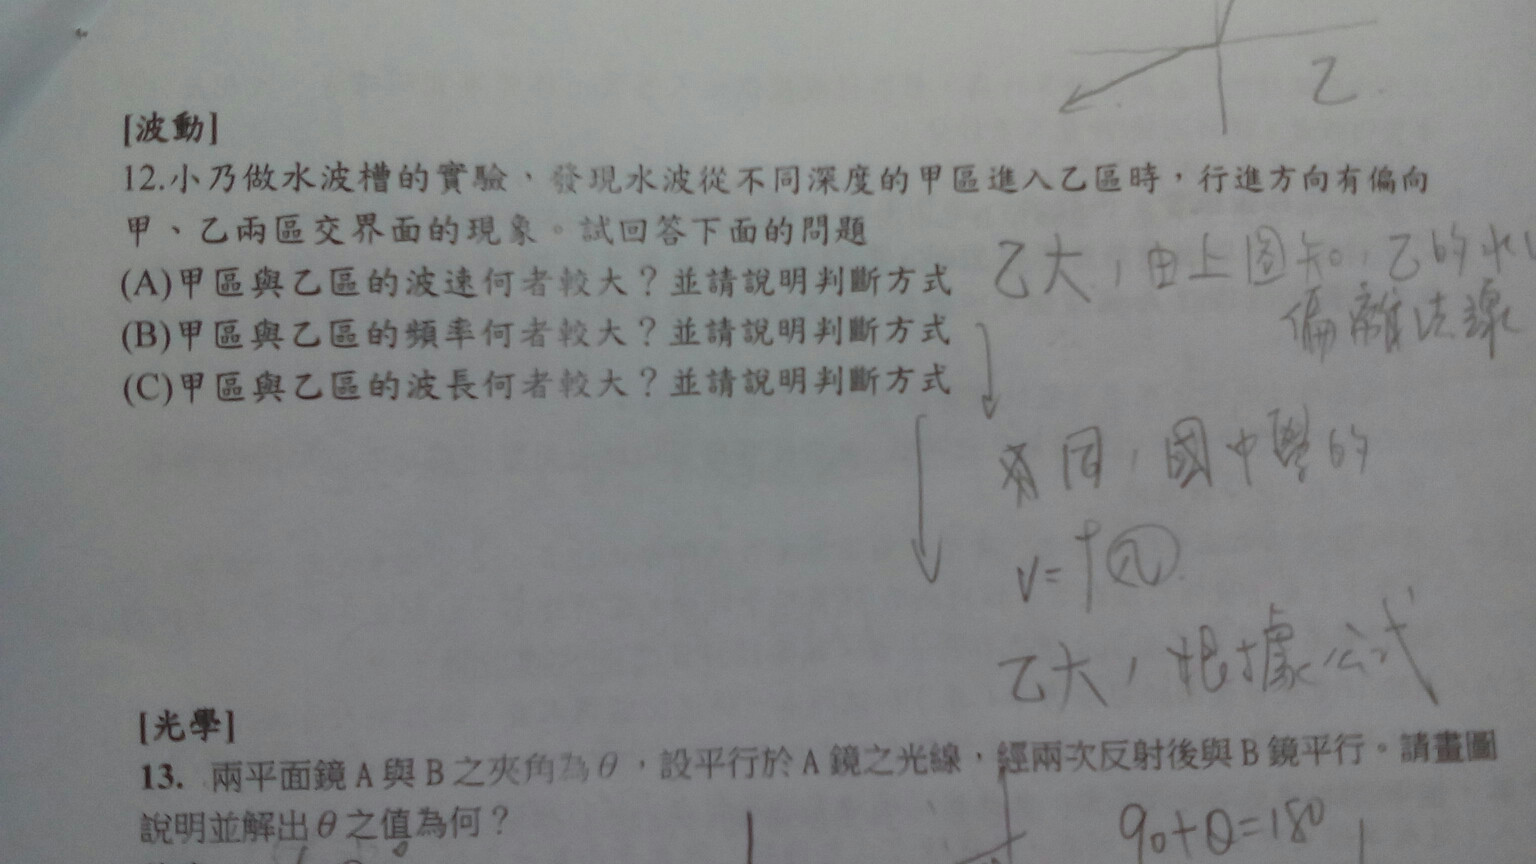 乙
[波動]
12.小乃做水波槽的實驗，發現水波從不同深度的甲區進入乙區時，行進方向有偏向
甲、乙兩區交界面的現象。試回答下面的問題
(A)甲區與乙區的波速何者較大？並請說明判斷方式
乙大，由上圖知，乙的水
偏離法線
(B)甲區與乙區的頻率何者較大？並請說明判斷方式
(C)甲區與乙區的波長何者較大？並請說明判斷方式
同，國中學的
v=f
乙大，根據公式
[光學]
13. 兩平面鏡 A 與 B 之夾角為θ，設平行於 A 鏡之光線，經兩次反射後與 B 鏡平行。請畫圖
說明並解出θ之值為何？
90+θ=180